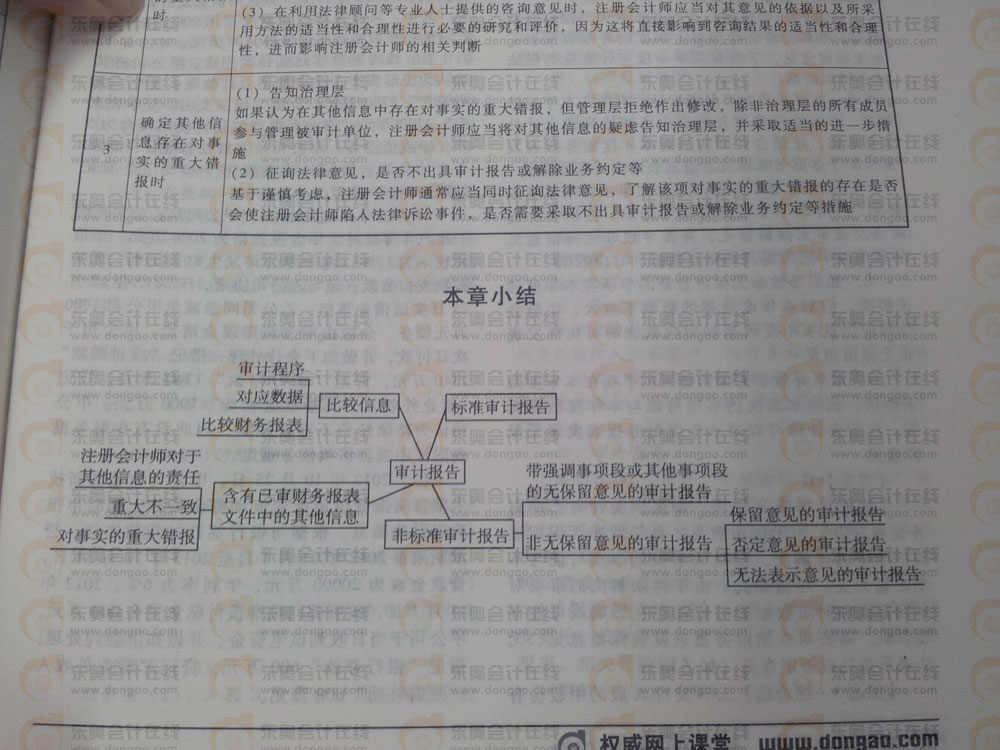 的重大错报
时
(3) 在利用法律顾问等专业人士提供的咨询意见时，注册会计师应当对其意见的依据以及所采
用方法的适当性和合理性进行必要的研究和评价，因为这将直接影响到咨询结果的适当性和合理
性，进而影响注册会计师的相关判断
3
确定其他信
息存在对事
实的重大错
报时
(1) 告知治理层
如果认为在其他信息中存在对事实的重大错报，但管理层拒绝作出修改，除非治理层的所有成员
参与管理被审计单位，注册会计师应当将对其他信息的疑虑告知治理层，并采取适当的进一步措
施
(2) 征询法律意见，是否不出具审计报告或解除业务约定等
基于谨慎考虑，注册会计师通常应当同时征询法律意见，了解该项对事实的重大错报的存在是否
会使注册会计师陷入法律诉讼事件，是否需要采取不出具审计报告或解除业务约定等措施
本章小结
审计程序
对应数据
比较财务报表
比较信息
标准审计报告
注册会计师对于
其他信息的责任
重大不一致
对事实的重大错报
含有已审财务报表
文件中的其他信息
审计报告
非标准审计报告
带强调事项段或其他事项段
的无保留意见的审计报告
非无保留意见的审计报告
保留意见的审计报告
否定意见的审计报告
无法表示意见的审计报告
东奥会计在线
www.dongao.com
权威网上课堂 www.dongao.com